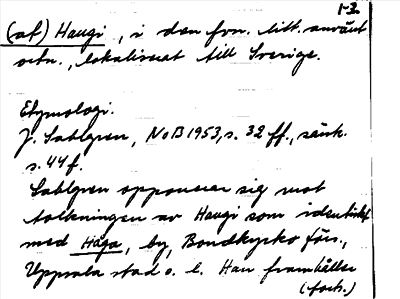 1-2
(af) Haugi, i den fvn. litt. använt
ortn., lokaliserat till Sverige.
Etymologi.
J. Sahlgren, NoB 1953, s. 32 ff., särsk.
s. 44 f.
Sahlgren opponerar sig mot
tolkningen av Haugi som identiskt
med Håga, by, Bondkyrko förs.,
Uppsala stad o. l. Han framhåller
(forts.)